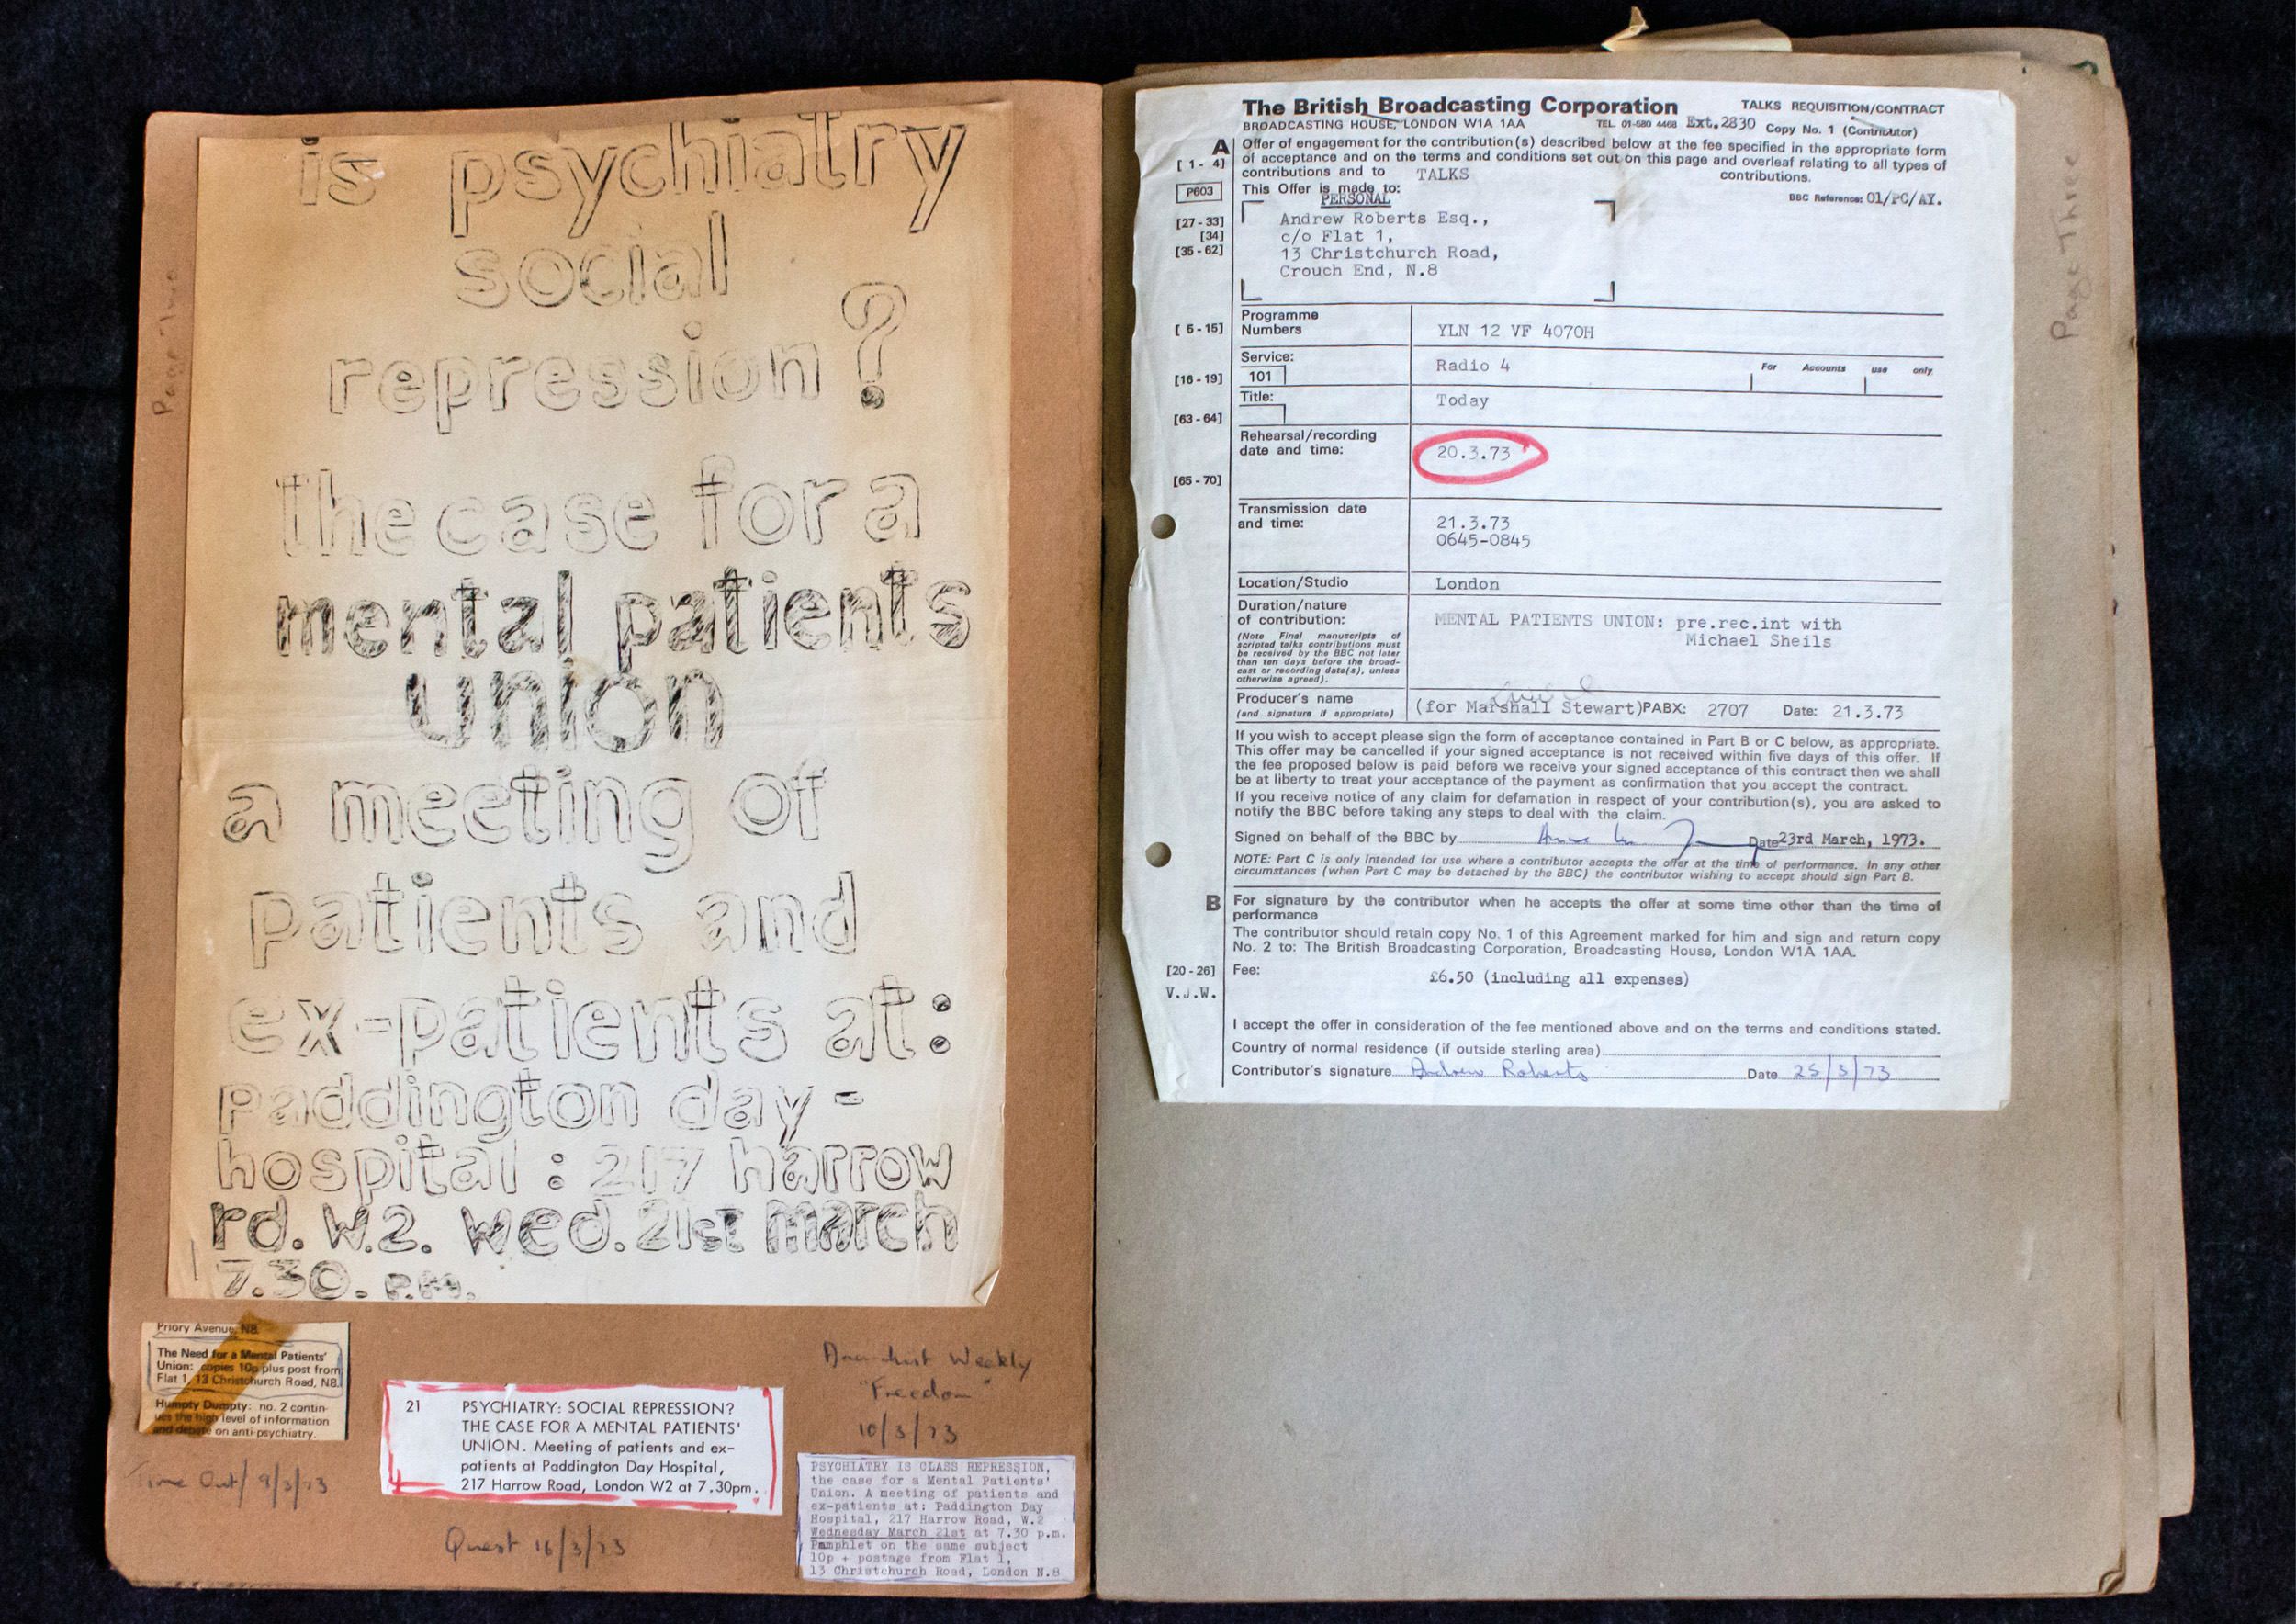 Page Two
is psychiatry
social
repression?
the case for a
mental patients
union
a meeting of
patients and
ex-patients at:
paddington day-
hospital: 217 harrow
rd. W.2. wed. 21st march
7.30. p.m.
Priory Avenue, N8.
The Need for a Mental Patients'
Union: copies 10p plus post from
Flat 1, 13 Christchurch Road, N8.
Humpty Dumpty: no. 2 contin-
ues the high level of information
and debate on anti-psychiatry.
Time Out/ 9/3/73
21 PSYCHIATRY: SOCIAL REPRESSION?
THE CASE FOR A MENTAL PATIENTS'
UNION. Meeting of patients and ex-
patients at Paddington Day Hospital,
217 Harrow Road, London W2 at 7.30pm.
Quest 16/3/73
Anarchist Weekly
"Freedom"
10/3/73
PSYCHIATRY IS CLASS REPRESSION,
the case for a Mental Patients'
Union. A meeting of patients and
ex-patients at: Paddington Day
Hospital, 217 Harrow Road, W.2
Wednesday March 21st at 7.30 p.m.
Pamphlet on the same subject
10p + postage from Flat 1,
13 Christchurch Road, London N.8
Page Three
The British Broadcasting Corporation TALKS REQUISITION/CONTRACT
BROADCASTING HOUSE, LONDON W1A 1AA TEL. 01-580 4468 Ext.2830 Copy No. 1 (Contributor)
A Offer of engagement for the contribution(s) described below at the fee specified in the appropriate form
[ 1 - 4] of acceptance and on the terms and conditions set out on this page and overleaf relating to all types of
contributions and to TALKS contributions.
P603 This Offer is made to:
PERSONAL BBC Reference: 01/PC/AY.
[27 - 33] Andrew Roberts Esq.,
[34] c/o Flat 1,
[35 - 62] 13 Christchurch Road,
Crouch End, N.8
Programme
[ 5 - 15] Numbers YLN 12 VF 4070H
Service:
[16 - 19] 101 Radio 4 For Accounts use only
Title: Today
[63 - 64]
Rehearsal/recording
date and time: 20.3.73
[65 - 70]
Transmission date
and time: 21.3.73
0645-0845
Location/Studio London
Duration/nature
of contribution: MENTAL PATIENTS UNION: pre.rec.int with
Michael Sheils
(Note Final manuscripts of
scripted talks contributions must
be received by the BBC not later
than ten days before the broad-
cast or recording date(s), unless
otherwise agreed).
Producer's name
(and signature if appropriate) (for Marshall Stewart)PABX: 2707 Date: 21.3.73
If you wish to accept please sign the form of acceptance contained in Part B or C below, as appropriate.
This offer may be cancelled if your signed acceptance is not received within five days of this offer. If
the fee proposed below is paid before we receive your signed acceptance of this contract then we shall
be at liberty to treat your acceptance of the payment as confirmation that you accept the contract.
If you receive notice of any claim for defamation in respect of your contribution(s), you are asked to
notify the BBC before taking any steps to deal with the claim.
Signed on behalf of the BBC by Date 23rd March, 1973.
NOTE: Part C is only intended for use where a contributor accepts the offer at the time of performance. In any other
circumstances (when Part C may be detached by the BBC) the contributor wishing to accept should sign Part B.
B For signature by the contributor when he accepts the offer at some time other than the time of
performance
The contributor should retain copy No. 1 of this Agreement marked for him and sign and return copy
No. 2 to: The British Broadcasting Corporation, Broadcasting House, London W1A 1AA.
[20 - 26] Fee: £6.50 (including all expenses)
V.J.W.
I accept the offer in consideration of the fee mentioned above and on the terms and conditions stated.
Country of normal residence (if outside sterling area)
Contributor's signature Andrew Roberts Date 25/3/73